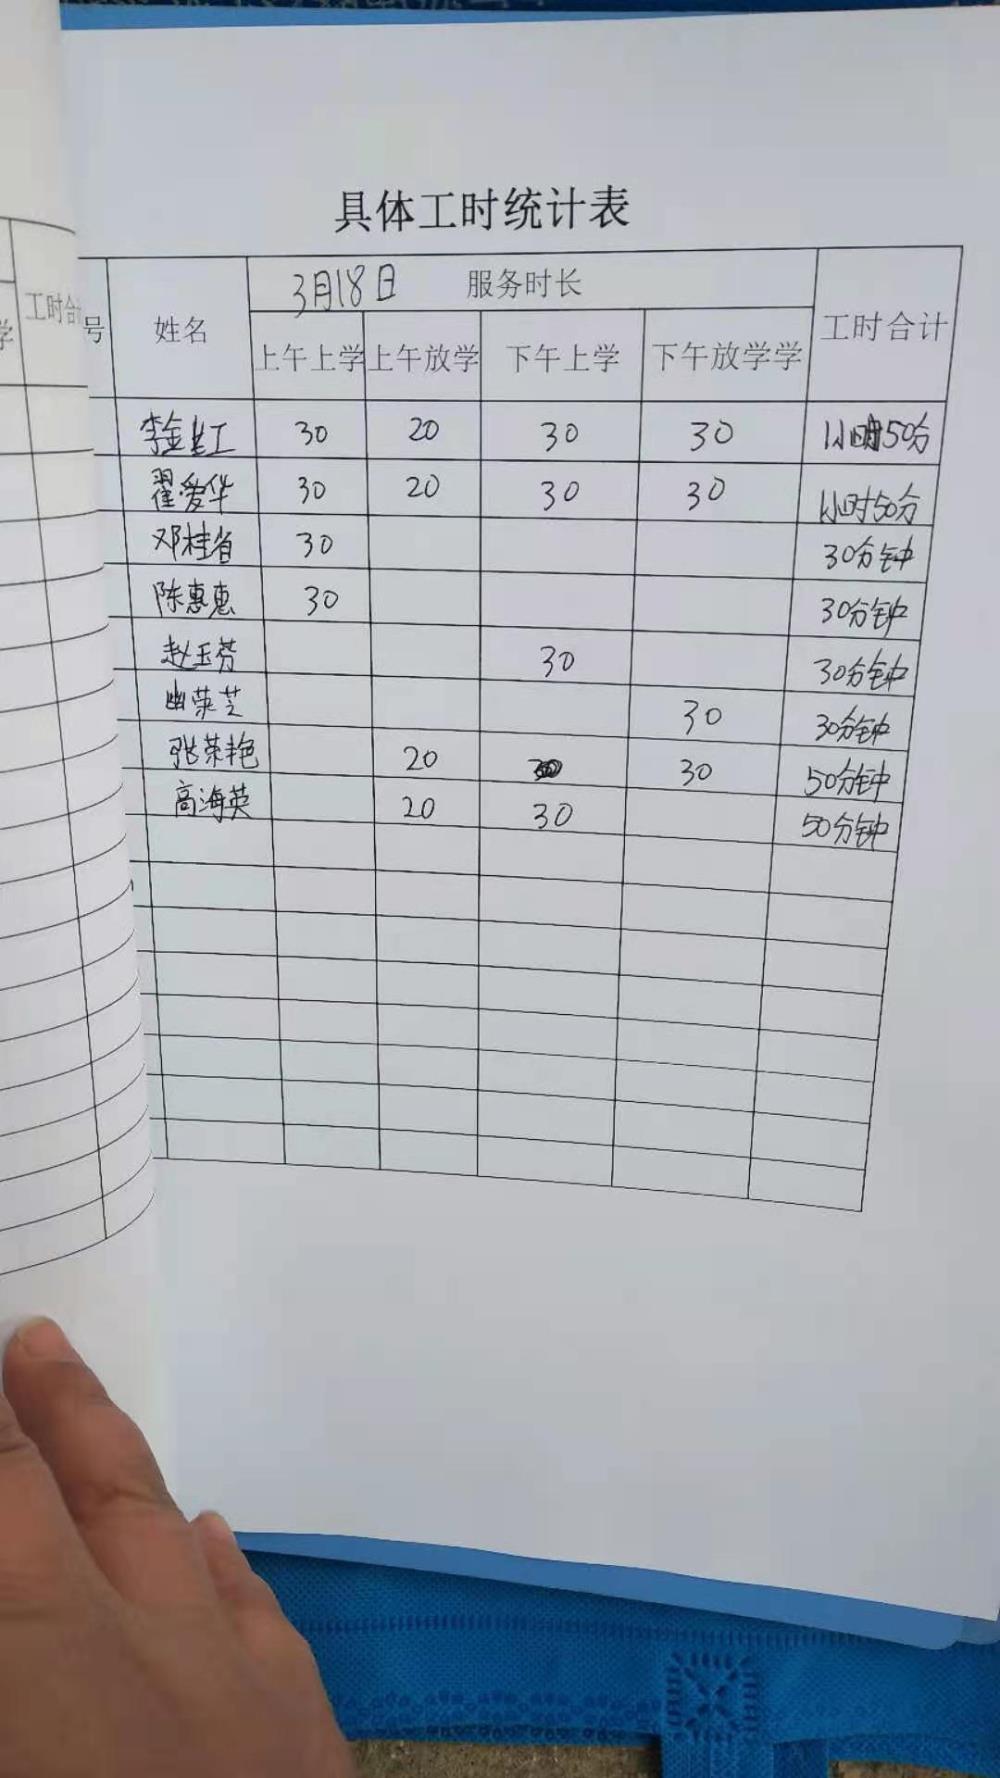 具体工时统计表
工时合 号 姓名 3月18日 服务时长 工时合计
学 上午上学 上午放学 下午上学 下午放学学
30 20 30 30 1小时50分
翟爱华 30 20 30 30 1小时50分
邓桂省 30 30分钟
陈惠惠 30 30分钟
赵玉芬 30 30分钟
荣芝 30 30分钟
张荣艳 20 30 50分钟
高海英 20 30 50分钟